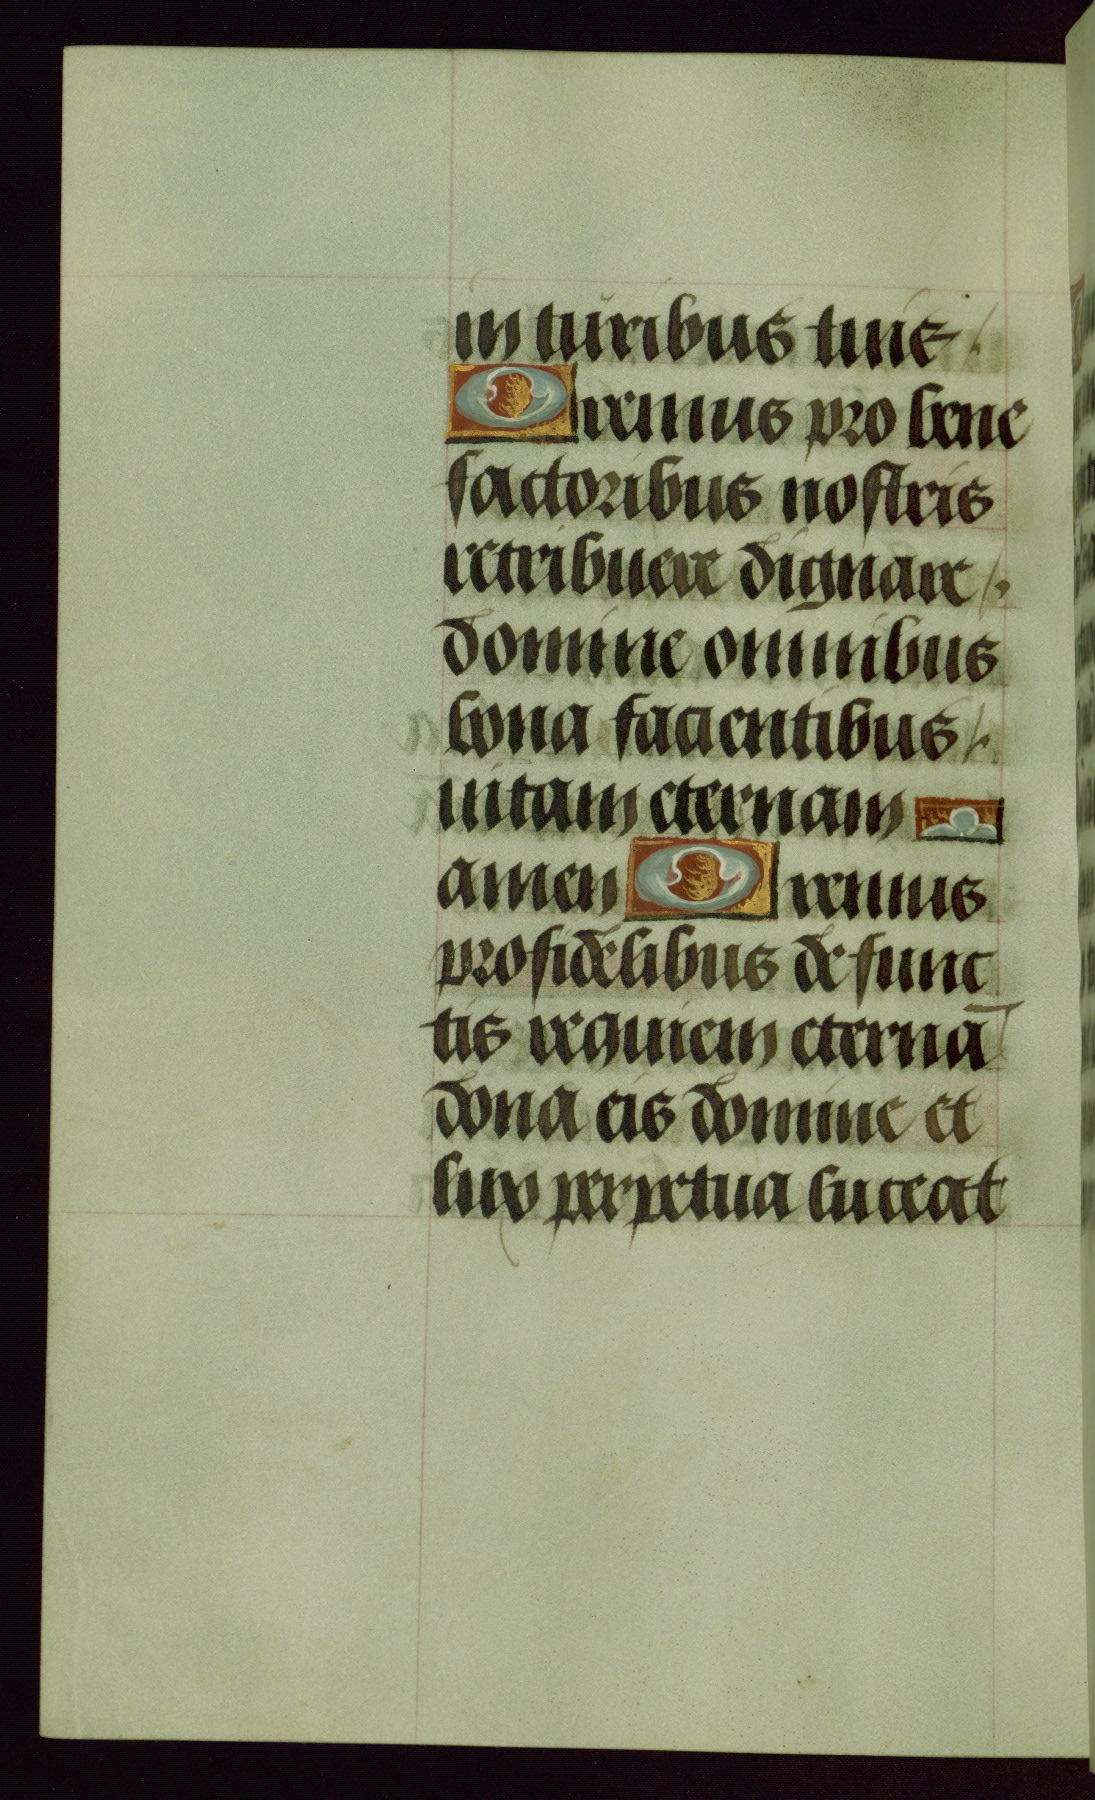 in turribus tuis
Oremus pro bene
factoribus nostris
retribuere dignare
domine omnibus
bona facientibus
uitam eternam
amen Oremus
pro fidelibus defunc
tis requiem eternā
dona eis domine et
lux perpetua luceat